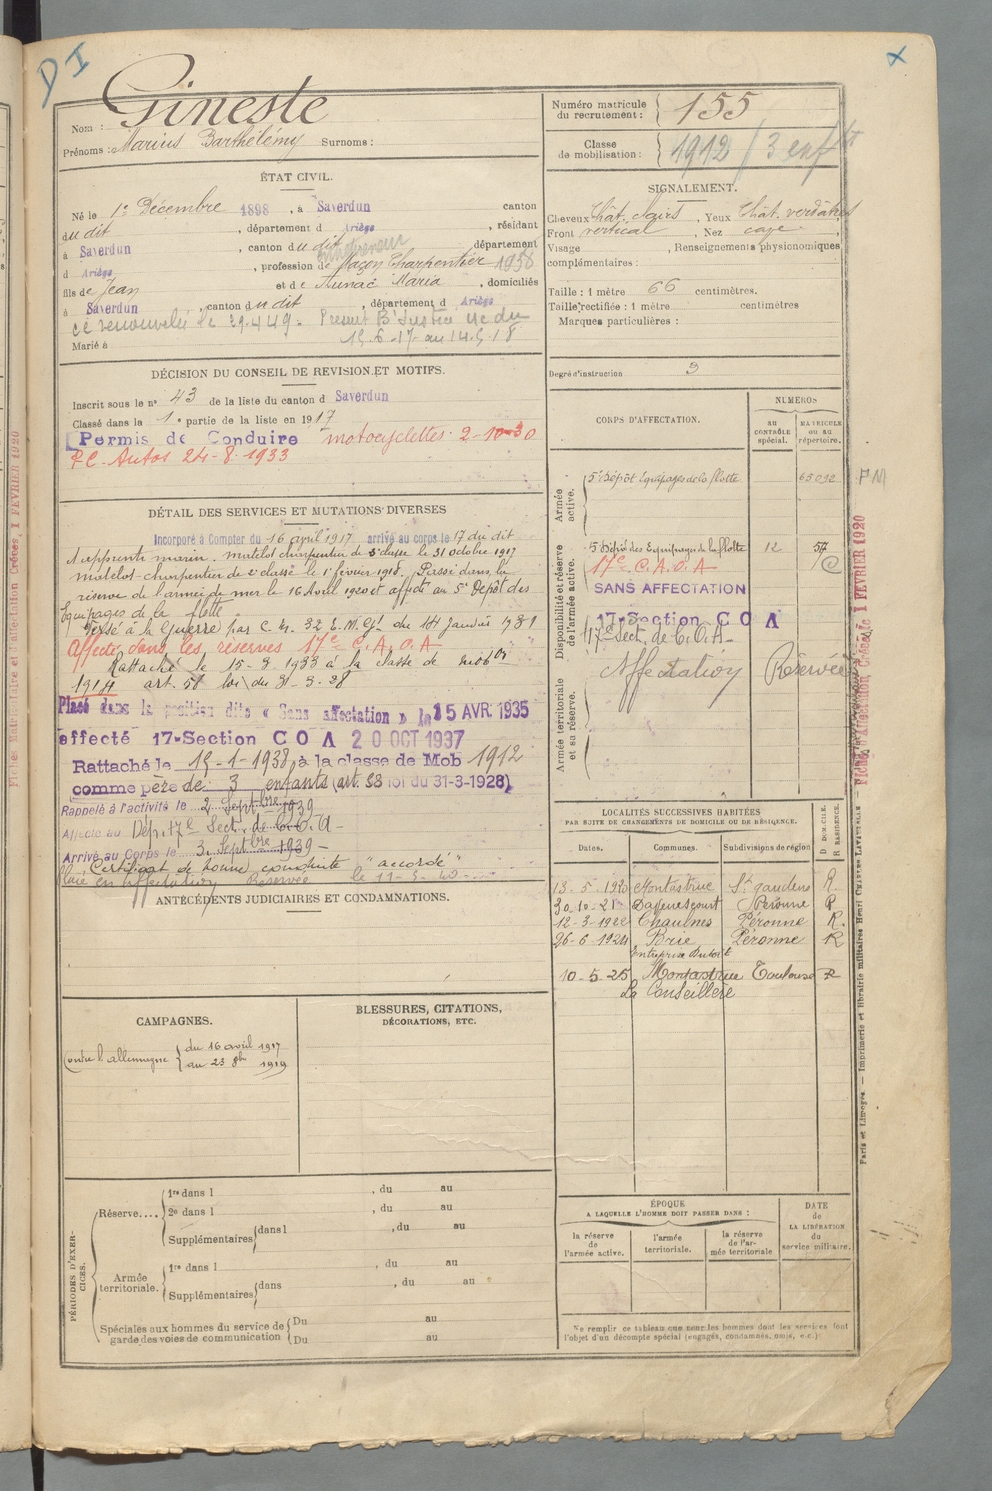 D I
X
Nom : Gineste
Prénoms : Marius Barthélémy Surnome :
Numéro matricule du recrutement : 155
Classe de mobilisation : 1912 / 3 enfts
ÉTAT CIVIL.
Né le 1er Décembre 1898, à Saverdun canton
du dit, département d Ariège, résidant
à Saverdun, canton du dit département
d Ariège, profession de Maçon Charpentier 1938
fils de Jean et de Aunac Maria, domiciliés
à Saverdun, canton du dit, département d Ariège
ce renouvelée le 29.4.49. 
15.6.17 au 14.5.18
Marié à
SIGNALEMENT.
Cheveux Chât. clairs, Yeux Chât. verdâtres
Front vertical, Nez cave
Visage , Renseignements physionomiques
complémentaires :
Taille : 1 mètre 66 centimètres.
Taille rectifiée : 1 mètre centimètres
Marques particulières :
Degré d'instruction 3
DÉCISION DU CONSEIL DE REVISION ET MOTIFS.
Inscrit sous le no 43 de la liste du canton d Saverdun
Classé dans la 1e partie de la liste en 1917
Permis de Conduire motocyclettes 2-10-30
P.C. Autos 24-8-1933
DÉTAIL DES SERVICES ET MUTATIONS DIVERSES
Incorporé à Compter du 16 april 1917 arrivé au corps le 17 du dit
Apprenti marin. matelot charpentier de 3e classe le 31 octobre 1917
matelot-charpentier de 2e classe le 1er février 1918. Passé dans la
réserve de l'armée de mer le 16 Avril 1920 et affecté au 5e Dépôt des
Equipages de la flotte
Versé à la Guerre par C. M. 32 E.M.Gl du 14 Janvier 1931
Affecté dans les réserves 17e C.A.O.A
Rattaché le 15-3 1933 à la classe de mobon
1914 art. 58 loi du 31-3-28
Placé dans la position dite « Sans affectation » le 15 AVR. 1935
affecté 17e Section C O A 20 OCT 1937
Rattaché le 15-1-1938 à la classe de Mob 1912
comme père de 3 enfants (art. 58 loi du 31-3-1928)
Rappelé à l'activité le 2 Septbre 1939
Affecté au Dép. 17e Sect. de C.O.A -
Arrivé au Corps le 3 Septbre 1939 -
Certificat de bonne conduite "accordé"
Placé en Affectation Réservée le 11-3-40
ANTÉCÉDENTS JUDICIAIRES ET CONDAMNATIONS.
CAMPAGNES.
Contre l'allemagne { du 16 avril 1917
au 23 8bre 1919
BLESSURES, CITATIONS,
DÉCORATIONS, ETC.
PÉRIODES D'EXERCICES.
Réserve....
1re dans l , du au
2e dans l , du au
Supplémentaires dans l , du au
Armée territoriale.
1re dans l , du au
Supplémentaires dans , du au
Spéciales aux hommes du service de garde des voies de communication
Du au
Du au
CORPS D'AFFECTATION.
NUMÉROS
AU CONTRÔLE spécial.
MATRICULE OU AU répertoire.
Armée active.
5e Dépôt Equipages de la flotte 65092 PM
Disponibilité et réserve de l'armée active.
5 Dépôt des Equipages de la flotte 12 57
17e C.A.O.A
SANS AFFECTATION
17e Section C O A
17e Sect. de C.O.A -
Affectation Réservée
Armée territoriale et sa réserve.
LOCALITÉS SUCCESSIVES HABITÉES
PAR SUITE DE CHANGEMENTS DE DOMICILE OU DE RÉSIDENCE.
Dates. Communes. Subdivisions de région D. DOMICILE. R. RÉSIDENCE.
13-5-1920 Montastruc St gaudens R.
30-10-21 Davenescourt Péronne R
12-3-1922 Chaulnes Péronne R.
26-6-1924 Brie Péronne R
Entreprise Dutoit
10-5-25 Montastruc Toulouse R
La Conseillère
ÉPOQUE
A LAQUELLE L'HOMME DOIT PASSER DANS :
la réserve de l'armée active.
l'armée territoriale.
la réserve de l'armée territoriale
DATE de LA LIBÉRATION du service militaire.
Ne remplir ce tableau que pour les hommes dont les services font
l'objet d'un décompte spécial (engagés, condamnés, omis, e.c.)
Fiches Matriculaire et d'affectation Créées, 1 FEVRIER 1920
Paris et Limoges. — Imprimerie et librairie militaires Henri CHARLES-LAVAUZELLE